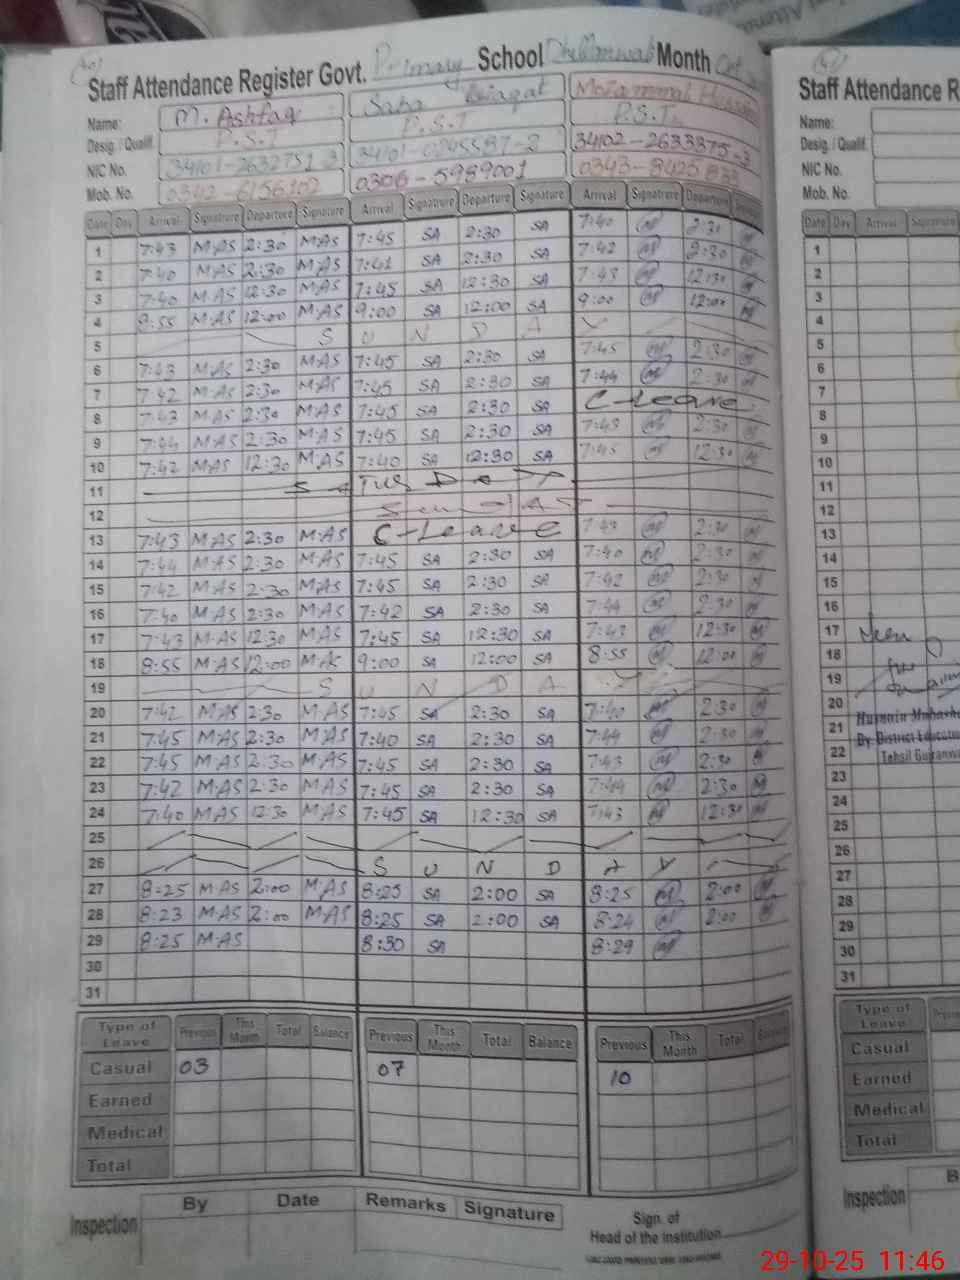 Staff Attendance Register Govt. Primary School Month
Name: M. Ashfaq Saba Liaqat
Desig. / Qualif. P.S.T P.S.T P.S.T.
NIC No. 34102-2633375-3
Mob. No. 0342-6156102 0306-5989001
Date Day Arrival Signatrure Departure Signature Arrival Signatrure Departure Signature Arrival Signatrure Departure
1 7:43 M·AS 2:30 M·AS 7:45 SA 2:30 SA 7:40 2:30
2 7:40 M·AS 2:30 M·AS 7:41 SA 2:30 SA 7:42 2:30
3 7:40 M·AS 12:30 M·AS 7:45 SA 12:30 SA 7:43 12:30
4 8:55 M·AS 12:00 M·AS 9:00 SA 12:00 SA 9:00 12:00
5 S U N D A Y
6 7:43 M·AS 2:30 M·AS 7:45 SA 2:30 SA 7:45 2:30
7 7:42 M·AS 2:30 M·AS 7:45 SA 2:30 SA 7:44 2:30
8 7:43 M·AS 2:30 M·AS 7:45 SA 2:30 SA C-Leave
9 7:44 M·AS 2:30 M·AS 7:45 SA 2:30 SA 7:43 2:30
10 7:42 M·AS 12:30 M·AS 7:40 SA 12:30 SA 7:45 12:30
11
12
13 7:43 M·AS 2:30 M·AS C-Leave 7:43 2:30
14 7:44 M·AS 2:30 M·AS 7:45 SA 2:30 SA 7:40 2:30
15 7:42 M·AS 2:30 M·AS 7:45 SA 2:30 SA 7:42 2:30
16 7:40 M·AS 2:30 M·AS 7:42 SA 2:30 SA 7:44 2:30
17 7:43 M·AS 12:30 M·AS 7:45 SA 12:30 SA 7:43 12:30
18 8:55 M·AS 12:00 M·AS 9:00 SA 12:00 SA 8:55 12:00
19 S U N D A Y
20 7:42 M·AS 2:30 M·AS 7:45 SA 2:30 SA 7:40 2:30
21 7:45 M·AS 2:30 M·AS 7:40 SA 2:30 SA 7:44 2:30
22 7:45 M·AS 2:30 M·AS 7:45 SA 2:30 SA 7:43 2:30
23 7:42 M·AS 2:30 M·AS 7:45 SA 2:30 SA 7:44 2:30
24 7:40 M·AS 12:30 M·AS 7:45 SA 12:30 SA 7:43 12:30
25
26 S U N D A Y
27 8:25 M·AS 2:00 M·AS 8:25 SA 2:00 SA 8:25 2:00
28 8:23 M·AS 2:00 M·AS 8:25 SA 2:00 SA 8:24 2:00
29 8:25 M·AS 8:30 SA 8:29
30
31
Type of Leave Previous This Month Total Balance Previous This Month Total Balance Previous This Month Total
Casual 03 07 10
Earned
Medical
Total
Inspection By Date Remarks Signature
Sign. of
Head of the Institution
Staff Attendance R
Name:
Desig. / Qualif.
NIC No.
Mob. No.
Date Day Arrival Signature
1
2
3
4
5
6
7
8
9
10
11
12
13
14
15
16
17
18
19
20
21
22
23
24
25
26
27
28
29
30
31
Seen
Type of Leave
Casual
Earned
Medical
Total
Inspection B
29-10-25 11:46